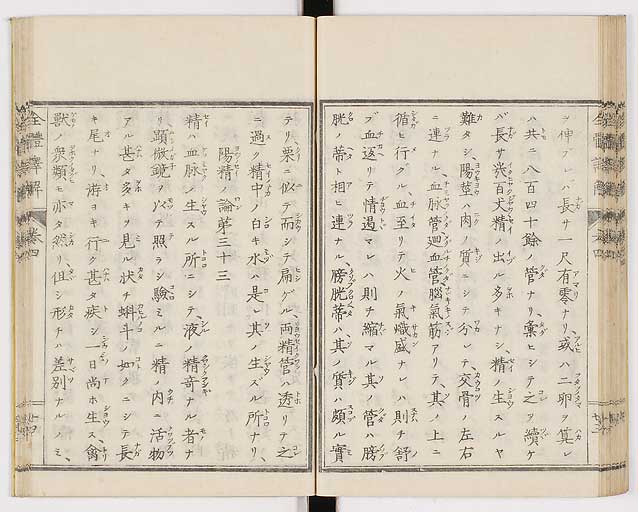 ヲ伸ブレハ長サ一尺有零ナリ、或ハ二卵ヲ算レ
ハ共ニ八百四十餘ノ管ナリ、彙ヒシテ之ヲ續ケ
バ長サ幾百丈精ノ出ル多キナシ、精ノ生スルヤ
難タシ、陽莖ハ肉ノ質ニシテ分レテ、交骨ノ左右
ニ連ナル、血脈管迴血管腦氣筋アリテ、其ノ上ニ
循ヒ行クル、血至リテ火ノ氣熾盛ナレハ則チ舒
ブ血返リテ情過マレハ則チ縮マル其ノ管ハ膀
胱ノ蒂ト相ヒ連ナル、膀胱蒂ハ、其ノ質ハ頗ル實
テリ、栗ニ似テ而シテ扁ゲル、両精管ハ透リテ之
ニ過ク精中ノ白キ水ハ是レ其ノ生ズル所ナリ、
陽精ノ論第三十三
精ハ血脈ノ生スル所ニシテ、液精奇ナル者ナ
リ顕微鏡ヲ以テ照ラシ驗ミルニ精ノ内ニ活物
アル甚タ多キヲ見ル状チ蝌斗ノ如クニシテ長
キ尾ナリ、游ヨキ行ク甚タ疾シ一日尚ホ生ス、禽
獸ノ衆類モ亦タ然リ、但シ形チハ差別ナルノミ、
全體譯解
卷四